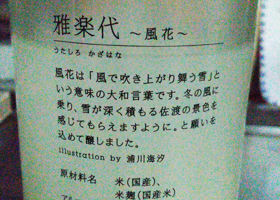 雅楽代 ～風花～
うたしろ かざはな
風花は「風で吹き上がり舞う雪」と
いう意味の大和言葉です。冬の風に
乗り、雪が深く積もる佐渡の景色を
感じてもらえますように。と願いを
込めて醸しました。
illustration by 浦川海汐
原材料名 米(国産)、
米麹(国産米)